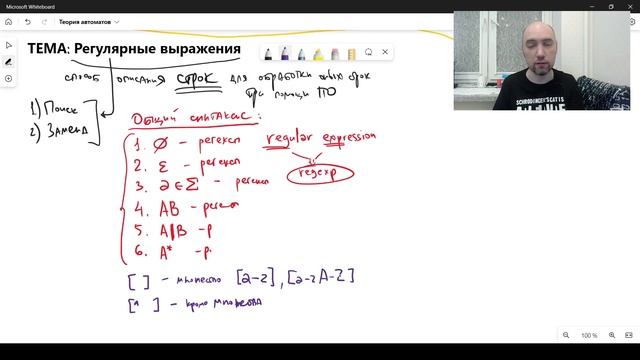 Microsoft Whiteboard
Теория автоматов
ТЕМА: Регулярные выражения
способ описания строк для обработки этих строк
при помощи ПО
1) Поиск
2) Замена
Общий синтаксис:
1. ∅ – регексп
regular expression
regexp
2. ε – регексп
3. a ∈ Σ – регексп
4. AB – регексп
5. A|B – р
6. A* – р.
[ ] – множество [a-z], [a-zA-Z]
[^ ] – кроме множества
SCHRODINGER'S CAT IS
100 %